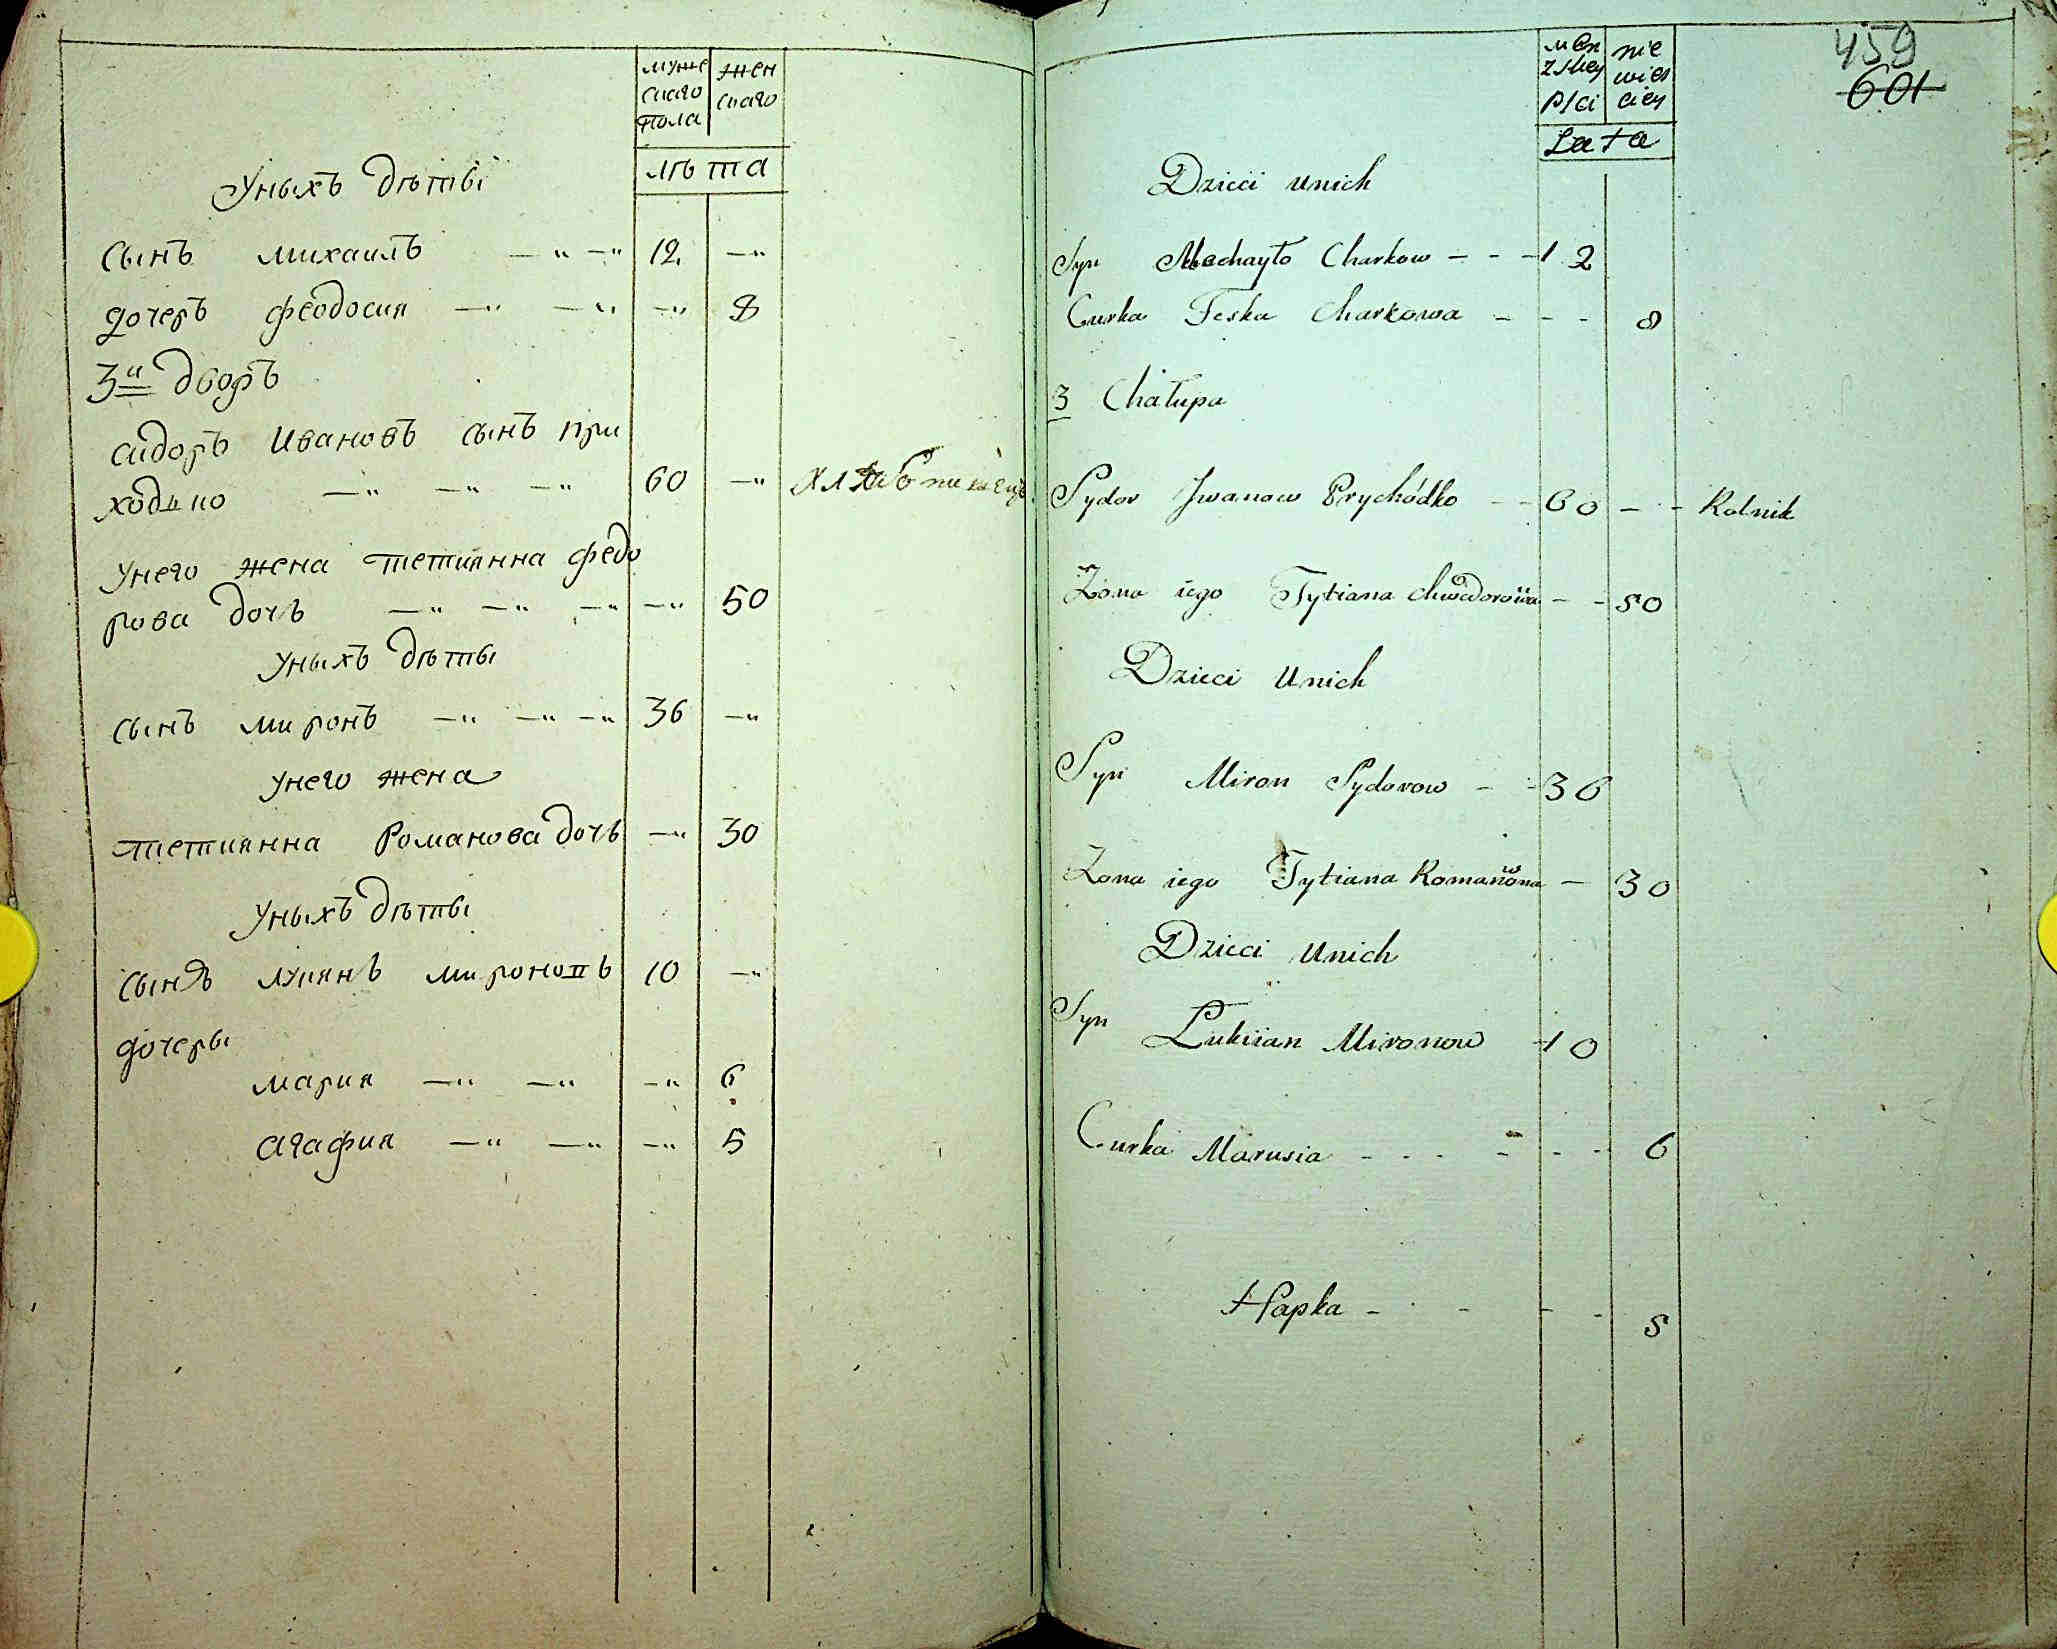 муже жен
скаго скаго
пола
лѣта
Уныхъ дѣты
сынъ михаилъ —„ —„ 12 —„
дочеръ феодосия —„ —„ —„ 8
3й дворъ
сидоръ Ивановъ сынъ при
ходько —„ —„ —„ 60 —„
унего жена тетиянна федо
рова дочь —„ —„ —„ —„ 50
уныхъ дѣты
сынъ миронъ —„ —„ —„ 36 —„
унего жена
тетиянна Романова дочь —„ 30
уныхъ дѣты
сынъ лукянъ мироновъ 10 —„
дочеры
мария —„ —„ —„ 6
агафия —„ —„ —„ 5
459
601
męz nie
zskey wies
płci ciey
Lata
Dzieci unich
Syn Mechayło Charkow - - - 12
Curka Feska Charkowa - - - 8
3 Chałupa
Sydor Jwanow Prychódko - - 60 - - Rolnik
Zona iego Tytiana Chwedorowa - - 50
Dzieci Unich
Syn Miron Sydorow - - 36
Zona iego Tytiana Romanowna - 30
Dzieci Unich
Syn Lukiian Mironow - 10
Curka Marusia - - - - - - 6
Hapka - - - - 5